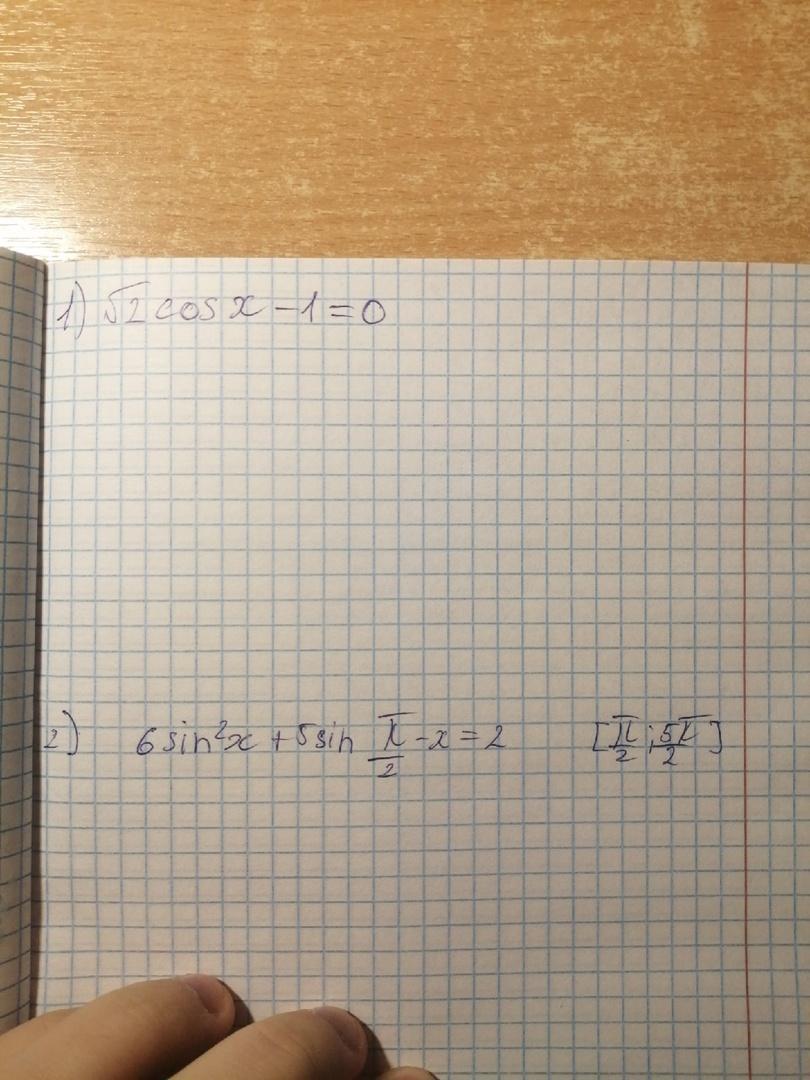 1) √2 cos x - 1 = 0
2) 6 sin²x + 5 sin π/2 - x = 2 [π/2; 5π/2]